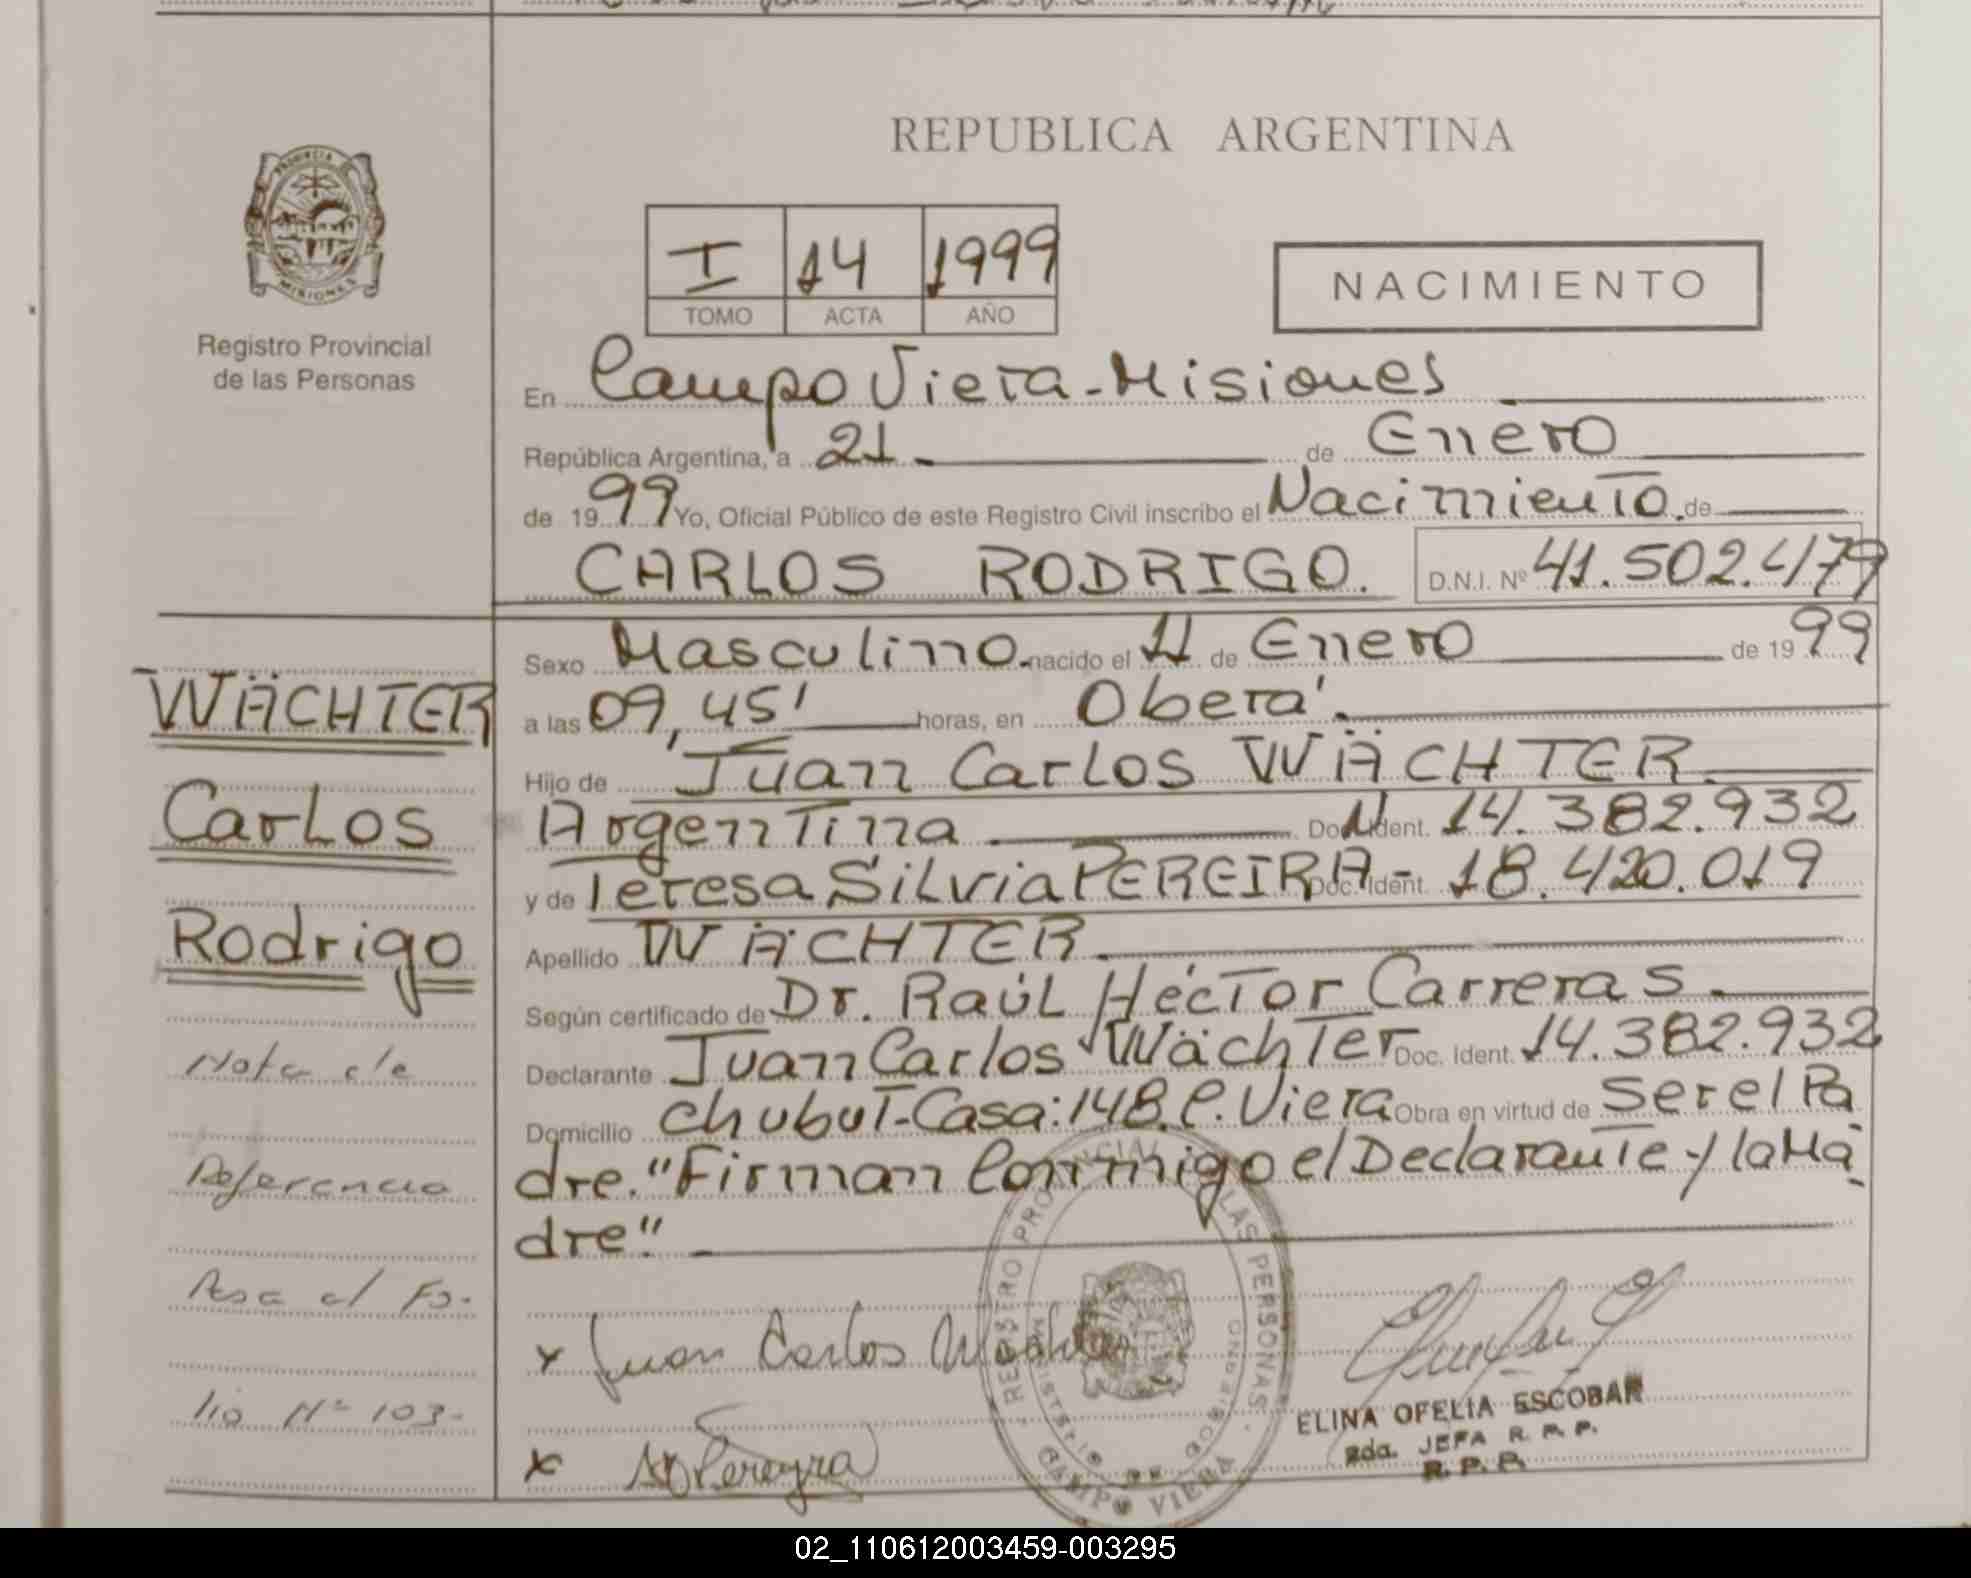 REPUBLICA ARGENTINA
PROVINCIA DE
MISIONES
Registro Provincial
de las Personas
I 14 1999
TOMO ACTA AÑO
NACIMIENTO
En Campo Viera - Misiones
República Argentina, a 21 de Enero
de 1999 Yo, Oficial Público de este Registro Civil inscribo el Nacimiento. de
CARLOS RODRIGO. D.N.I. Nº 41.502.479
Sexo Masculino. nacido el 11 de Enero de 1999
a las 09,45' horas, en Oberá.
Hijo de Juan Carlos WÄCHTER.
Argentina Doc. Ident. 14.382.932
y de Teresa Silvia PEREIRA - Doc. Ident. 18.420.019
Apellido WÄCHTER.
Según certificado de Dr. Raúl Héctor Carreras.
Declarante Juan Carlos Wächter Doc. Ident. 14.382.932
Domicilio Chubut-Casa:148.C.Viera Obra en virtud de ser el Pa
dre. "Firman Conmigo el Declarante y la Ma-
dre".
WÄCHTER
Carlos
Rodrigo
Nota de
Referencia
Pasa al Fo-
lio Nº 103-
x Juan Carlos Wachter
x Pereyra
REGISTRO PROVINCIAL DE LAS PERSONAS
CAMPO VIERA
ELINA OFELIA ESCOBAR
2da. JEFA R. P. P.
R. P. P.
02_110612003459-003295